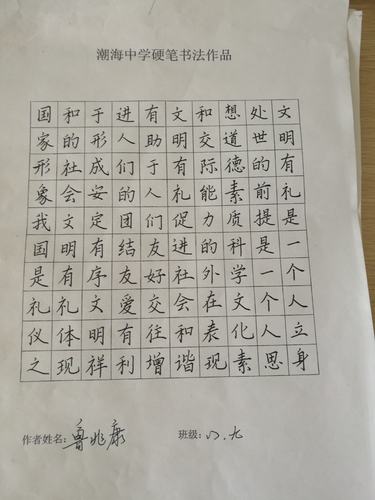 潮海中学硬笔书法作品
文明有礼是一个人立身
处世的前提是一个人思
想道德素质科学文化素
和交际能力的外在表现
文明有礼促进社会和谐
有助于人们友好交往增
进人们的团结友爱有利
于形成安定有序文明祥
和的社会文明有礼体现
国家形象我国是礼仪之
作者姓名：鲁兆康 班级：八.九